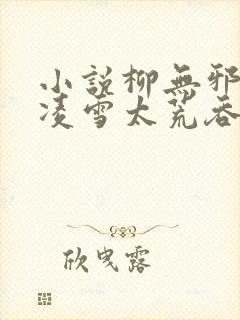 小說柳無邪
凌雪太荒吞
欣曳露